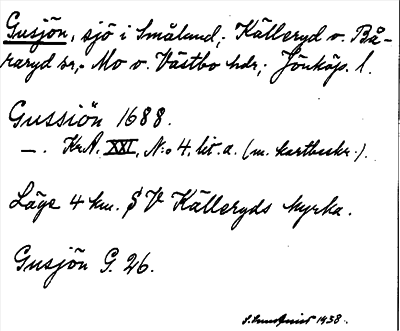 Gusjön, sjö i Småland; Källeryd o. Bå-
raryd snr, Mo o. Västbo hdr; Jönköp. l.
Gussiön 1688.
—. Kr.A. XXI, N:o 4. lit. a. (m. kartbeskr.).
Läge 4 km. SV Källeryds kyrka.
Gusjön G. 26.
1938.